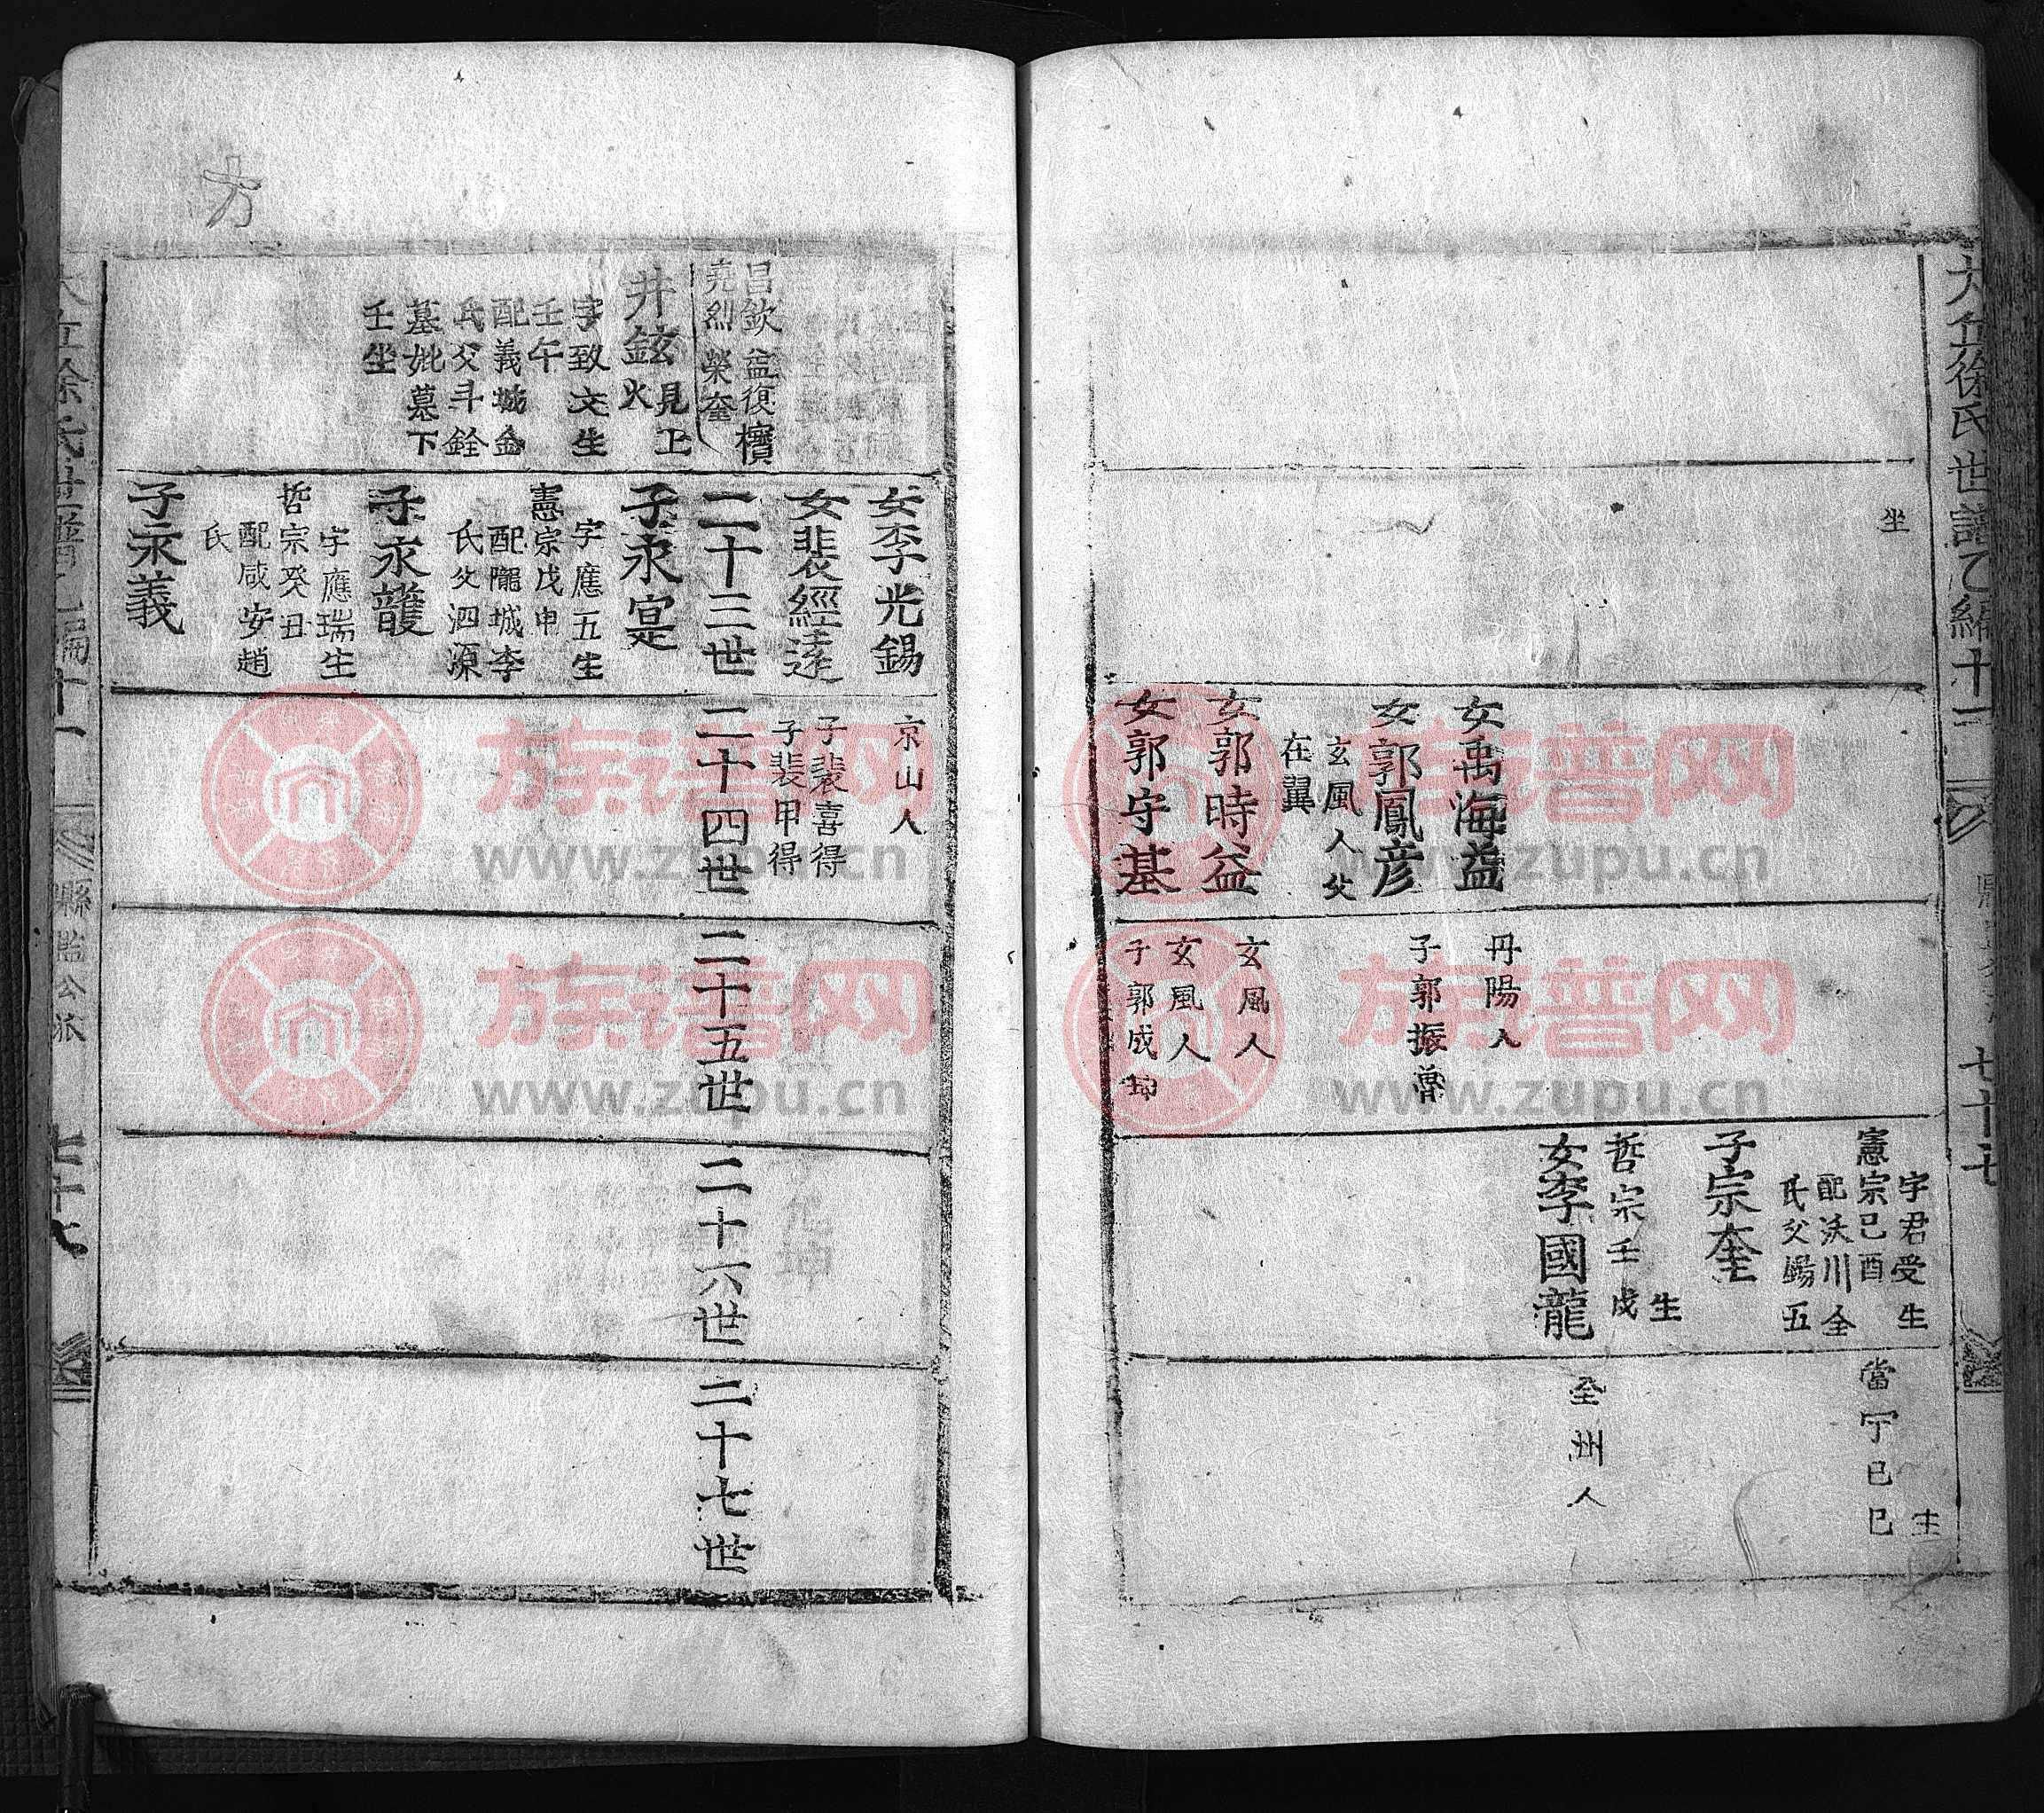 大丘徐氏世譜乙編十一
七十七
坐
女禹海益
女郭鳳彥
玄風人父
在翼
女郭時益
女郭守基
丹陽人
子郭振魯
玄風人
玄風人
子郭成坤
字君受生
憲宗己酉
配沃川全
氏父錫五
子宗奎
生
哲宗壬戌
女李國龍
生
當宁己巳
全州人
昌欽 益復 櫝
堯烈 榮奎
井鉉
見上
火
字致文生
壬午
配義城金
氏父斗銓
墓妣墓下
壬坐
女李光錫
女裴經達
二十三世
子永寔
字應五生
憲宗戊申
配隴城李
氏父泗源
子永護
字應瑞生
哲宗癸丑
配咸安趙
氏
子永義
京山人
子裴喜得
子裴甲得
二十四世
二十五世
二十六世
二十七世
大丘徐氏世譜乙編十一
縣監公派
七十八
方
族谱网
www.zupu.cn
族谱网
www.zupu.cn
族谱网
www.zupu.cn
族谱网
www.zupu.cn